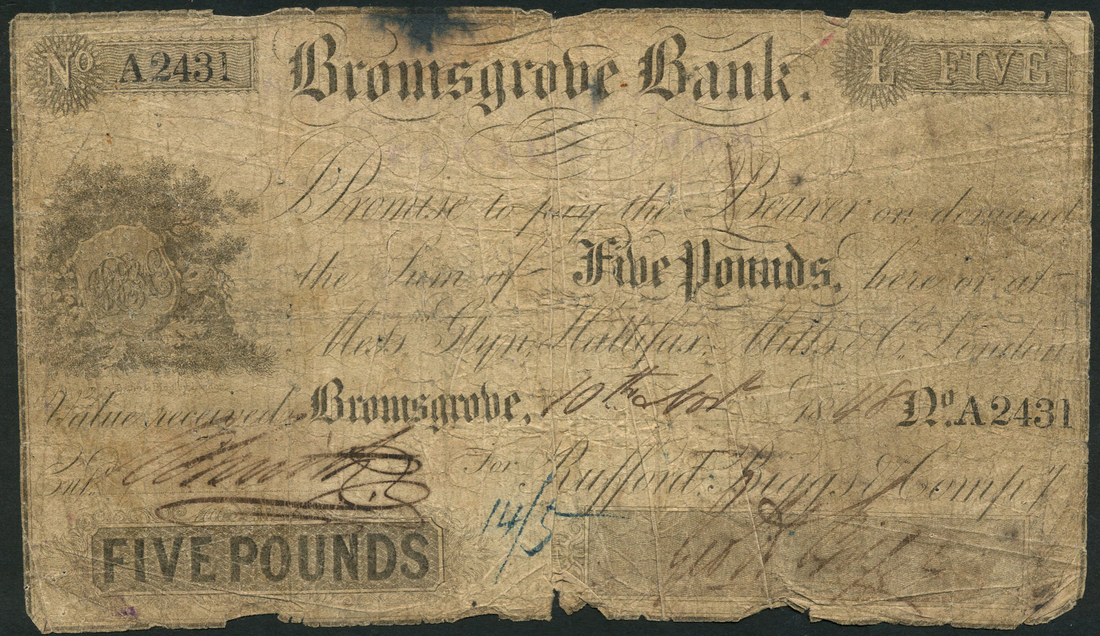 No A2431 Bromsgrove Bank. £ FIVE
I Promise to pay the Bearer on demand
the Sum of Five Pounds, here or at
Messrs Glyn, Hallifax, Mills & Co. London
Value received Bromsgrove, 10th Novr 1848 No. A2431
For Rufford, Biggs & Compy
14/5
FIVE POUNDS